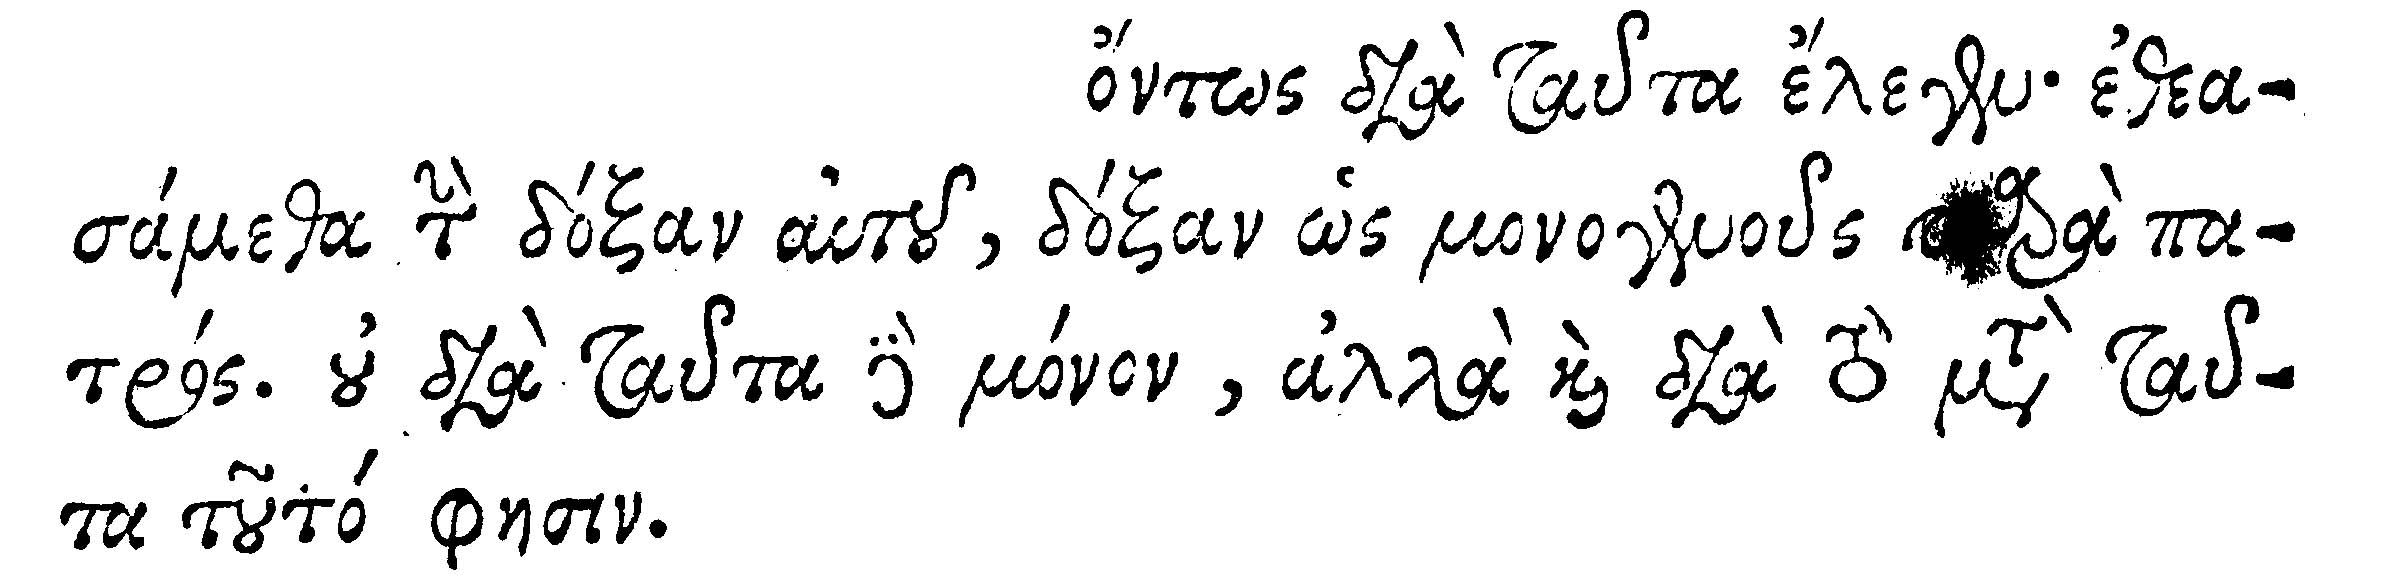 ὄντως διὰ ταῦτα ἔλεγεν· ἐθεα-
σάμεθα τὴν δόξαν αὐτοῦ, δόξαν ὡς μονογενοῦς παρὰ πα-
τρός. οὐ διὰ ταῦτα δὲ μόνον, ἀλλὰ καὶ διὰ τὸ μετὰ ταῦ-
τα τοῦτό φησιν.